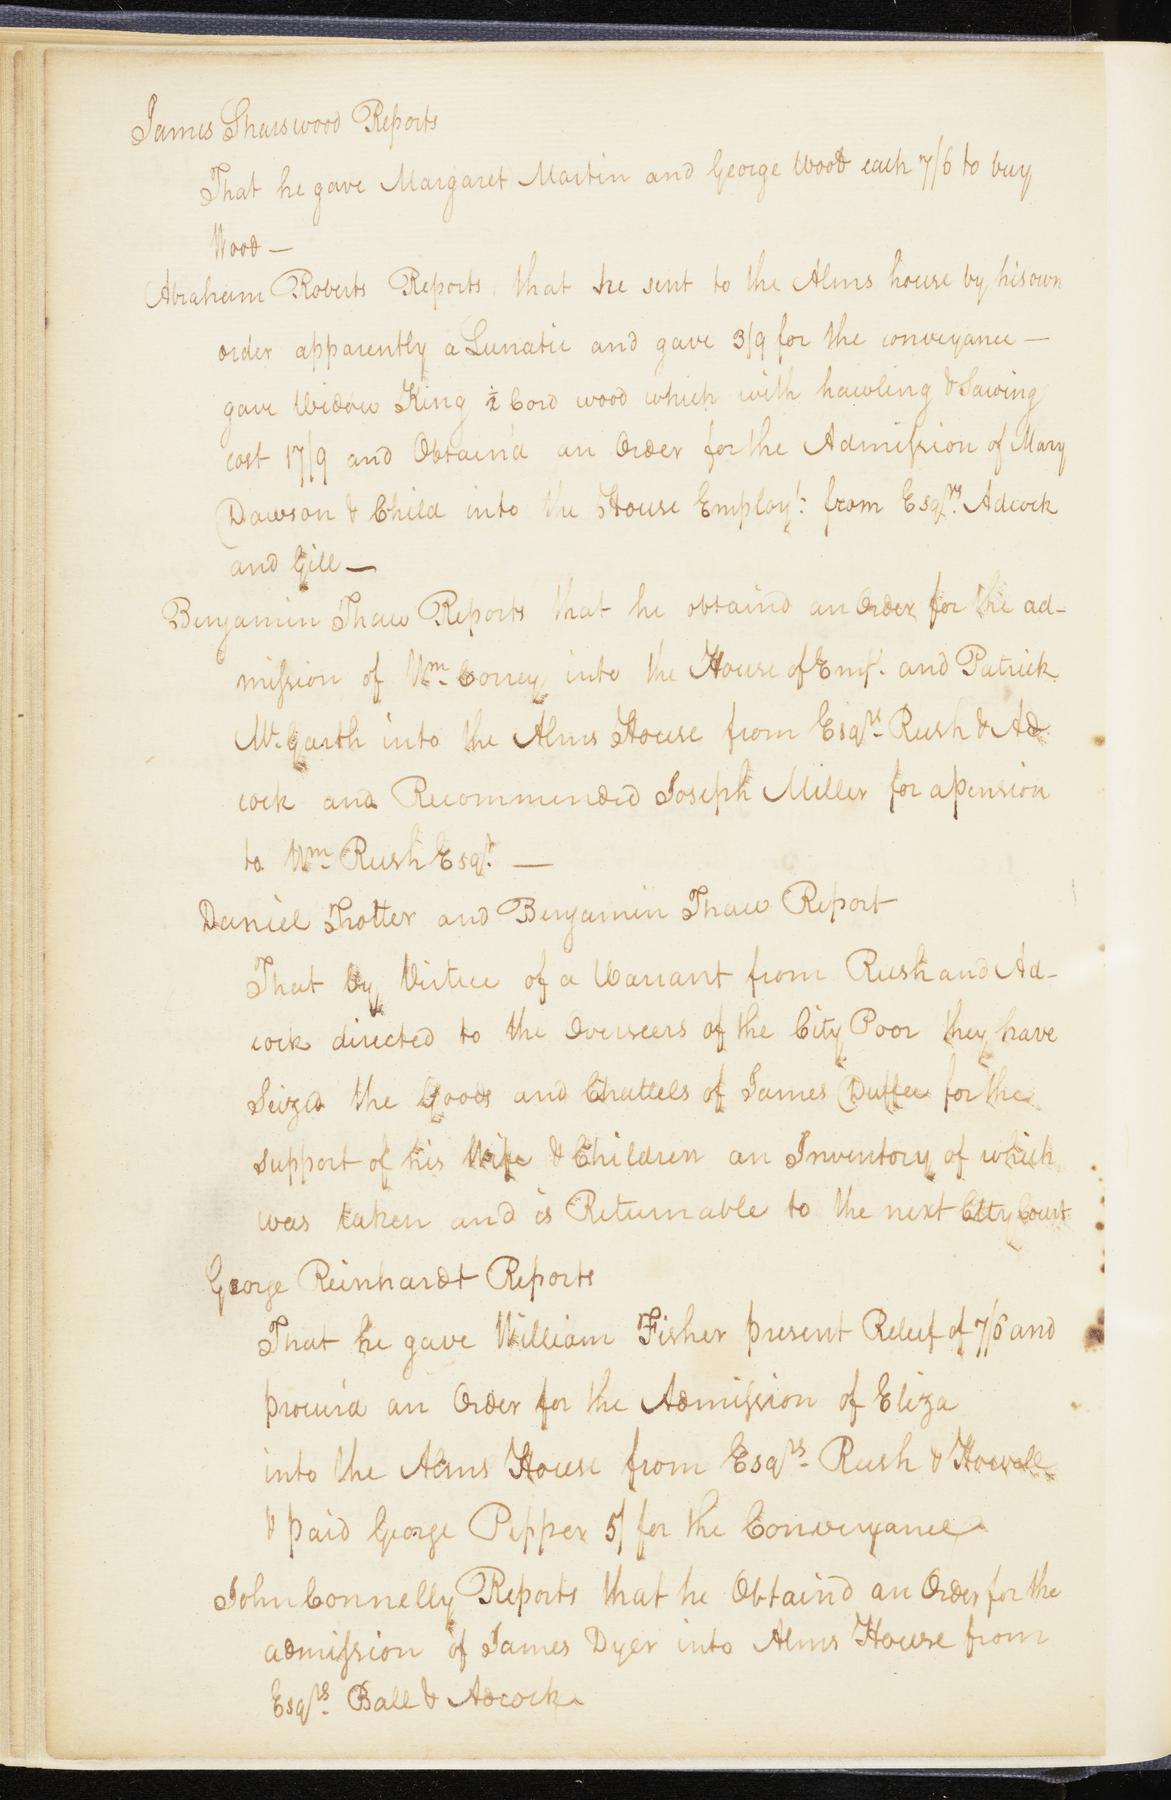 James Sharswood Reports
That he gave Margaret Martin and George Wood each 7/6 to buy
Wood —
Abraham Roberts Reports that he sent to the Alms house by his own
order apparently a Lunatic and gave 3/9 for the conveyance —
gave Widow King ½ Cord wood which with hawling & Sawing
cost 17/9 and Obtain'd an Order for the Admission of Mary
Dawson & Child into the House Employt: from Esqrs. Adcock
and Gill —
Benjamin Thaw Reports that he obtaind an Order for the ad-
mission of Wm. Coney into the House of Emt. and Patrick
Mc.Garth into the Alms House from Esqrs. Rush & Ad
cock and Recommended Joseph Miller for a pension
to Wm. Rush Esqr. —
Daniel Trotter and Benjamin Thaw Report
That by Virtue of a Warrant from Rush and Ad-
cock directed to the Overseers of the City Poor they have
Seizd the Goods and Chattels of James Duffee for the
support of his Wife & Children an Inventory of which
was taken and is Returnable to the next City Court
George Reinhardt Reports
That he gave William Fisher present Releif of 7/6 and
procur'd an Order for the Admission of Eliza
into the Alms House from Esqrs. Rush & Howell
& paid George Pepper 5/ for the Conveyance
John Connelly Reports that he Obtaind an Order for the
admission of James Dyer into Alms House from
Esqrs. Ball & Adcock